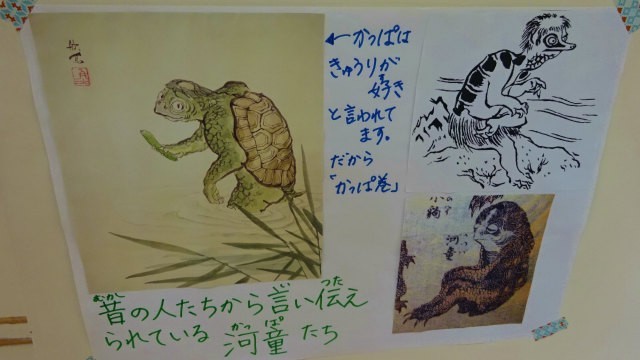 ←かっぱは
きゅうりが
好き
と言われて
ます。
だから
「かっぱ巻」
河童
昔の人たちから言い伝え
られている 河童 たち
むかし
つた
かっぱ